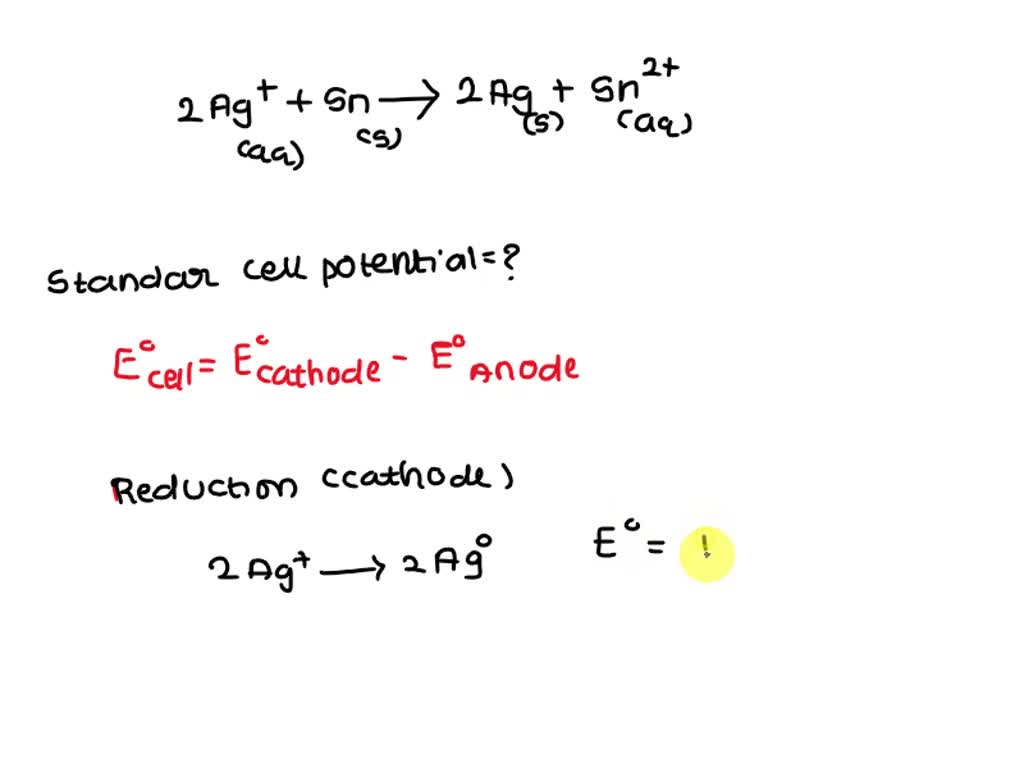 2Ag⁺ + Sn → 2Ag + Sn²⁺
(aq) (s) (s) (aq)
Standar cell potential = ?
E°cell = E°cathode - E°Anode
Reduction (cathode)
2Ag⁺ → 2Ag⁰ E° =